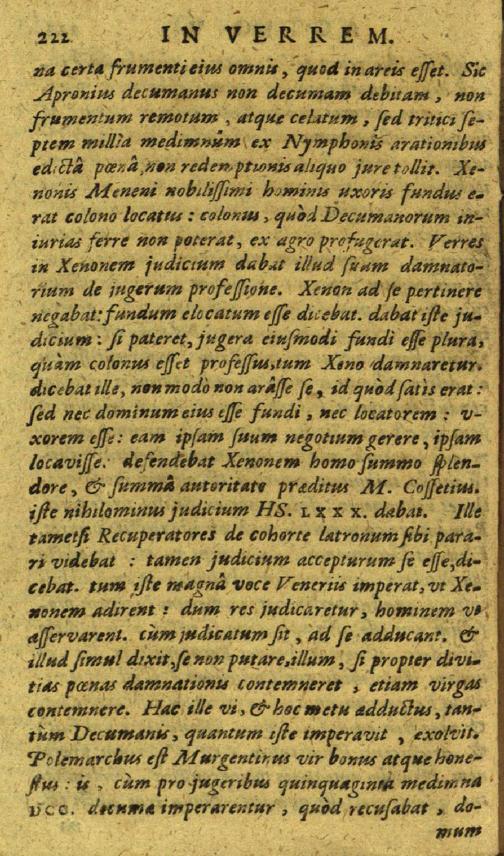 222 IN VERREM.
na certa frumenti ejus omnis, quod in areis esset. Sic
Apronius decumanus non decumam debitam, non
frumentum remotum, atque celatum, sed tritici se-
ptem millia medimnûm ex Nymphonis arationibus
edictâ pœnâ, non redemptionis aliquo jure tollit. Xe-
nonis Meneni nobilissimi hominis uxoris fundus e-
rat colono locatus: colonus, quòd Decumanorum in-
iurias ferre non poterat, ex agro profugerat. Verres
in Xenonem judicium dabat illud suum damnato-
rium de jugerum professione. Xenon ad se pertinere
negabat: fundum elocatum esse dicebat. dabat iste ju-
dicium: si pateret, jugera eiusmodi fundi esse plura,
quàm colonus esset professus, tum Xeno damnaretur.
dicebat ille, non modò non arâsse se, id quòd satis erat:
sed nec dominum eius esse fundi, nec locatorem: v-
xorem esse: eam ipsam suum negotium gerere, ipsam
locavisse. defendebat Xenonem homo summo splen-
dore, & summâ autoritate præditus M. Cossetius.
iste nihilominus judicium HS. LXXX. dabat. Ille
tametsi Recuperatores de cohorte latronum sibi para-
ri videbat: tamen judicium accepturum se esse, di-
cebat. tum iste magnâ voce Veneriis imperat, vt Xe-
nonem adirent: dum res judicaretur, hominem vt
asservarent. cùm judicatum sit, ad se adducant. &
illud simul dixit, se non putare, illum, si propter divi-
tias pœnas damnationis contemneret, etiam virgas
contemnere. Hac ille vi, & hoc metu adductus, tan-
tum Decumanis, quantum iste imperavit, exolvit.
Polemarchus est Murgentinus vir bonus atque hone-
stus: is, cùm pro jugeribus quinquaginta medimna
DCC. decuma imperarentur, quòd recusabat, do-
mum